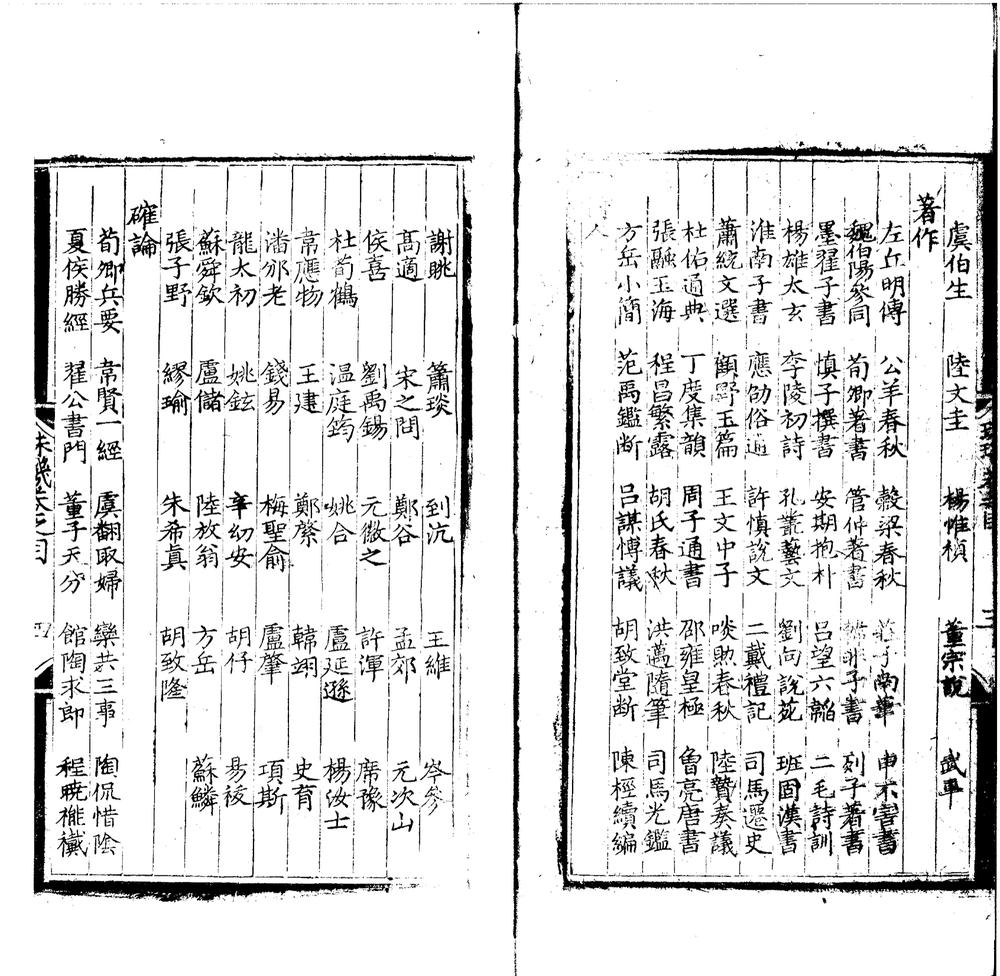 虞伯生 陸文圭 楊惟楨 董宗說 武平
著作
左丘明傳 公羊春秋 穀梁春秋 莊子南華 申不害書
魏伯陽參同 荀卿著書 管仲著書 子書 列子著書
墨翟子書 慎子撰書 安期抱朴 呂望六韜 二毛詩訓
楊雄太玄 李陵初詩 孔叢藝文 劉向說苑 班固漢書
淮南子書 應劭俗通 許慎說文 二戴禮記 司馬遷史
蕭統文選 顧野玉篇 王文中子 啖助春秋 陸贄奏議
杜佑通典 丁度集韻 周子通書 邵雍皇極 魯亮唐書
張融玉海 程昌繁露 胡氏春秋 洪邁隨筆 司馬光鑑
方岳小簡 范禹鑑断 呂謀博議 胡致堂断 陳桱續編
謝眺 簫琰 到沆 王維 岑參
高適 宋之問 鄭谷 孟郊 元次山
侯喜 劉禹錫 元微之 許渾 席豫
杜荀鶴 温庭筠 姚合 盧延遜 楊汝士
韋應物 王建 鄭綮 韓翊 史育
潘邠老 錢易 梅聖俞 盧肇 項斯
龍太初 姚鉉 辛幼安 胡仔 易祓
蘇舜欽 盧儲 陸放翁 方岳 蘇鱗
張子野 繆瑜 朱希真 胡致隆
確論
荀卿兵要 韋賢一經 虞翻取婦 欒共三事 陶侃惜陰
夏侯勝經 翟公書門 董子天分 館陶求郎 程曉榷襶
四